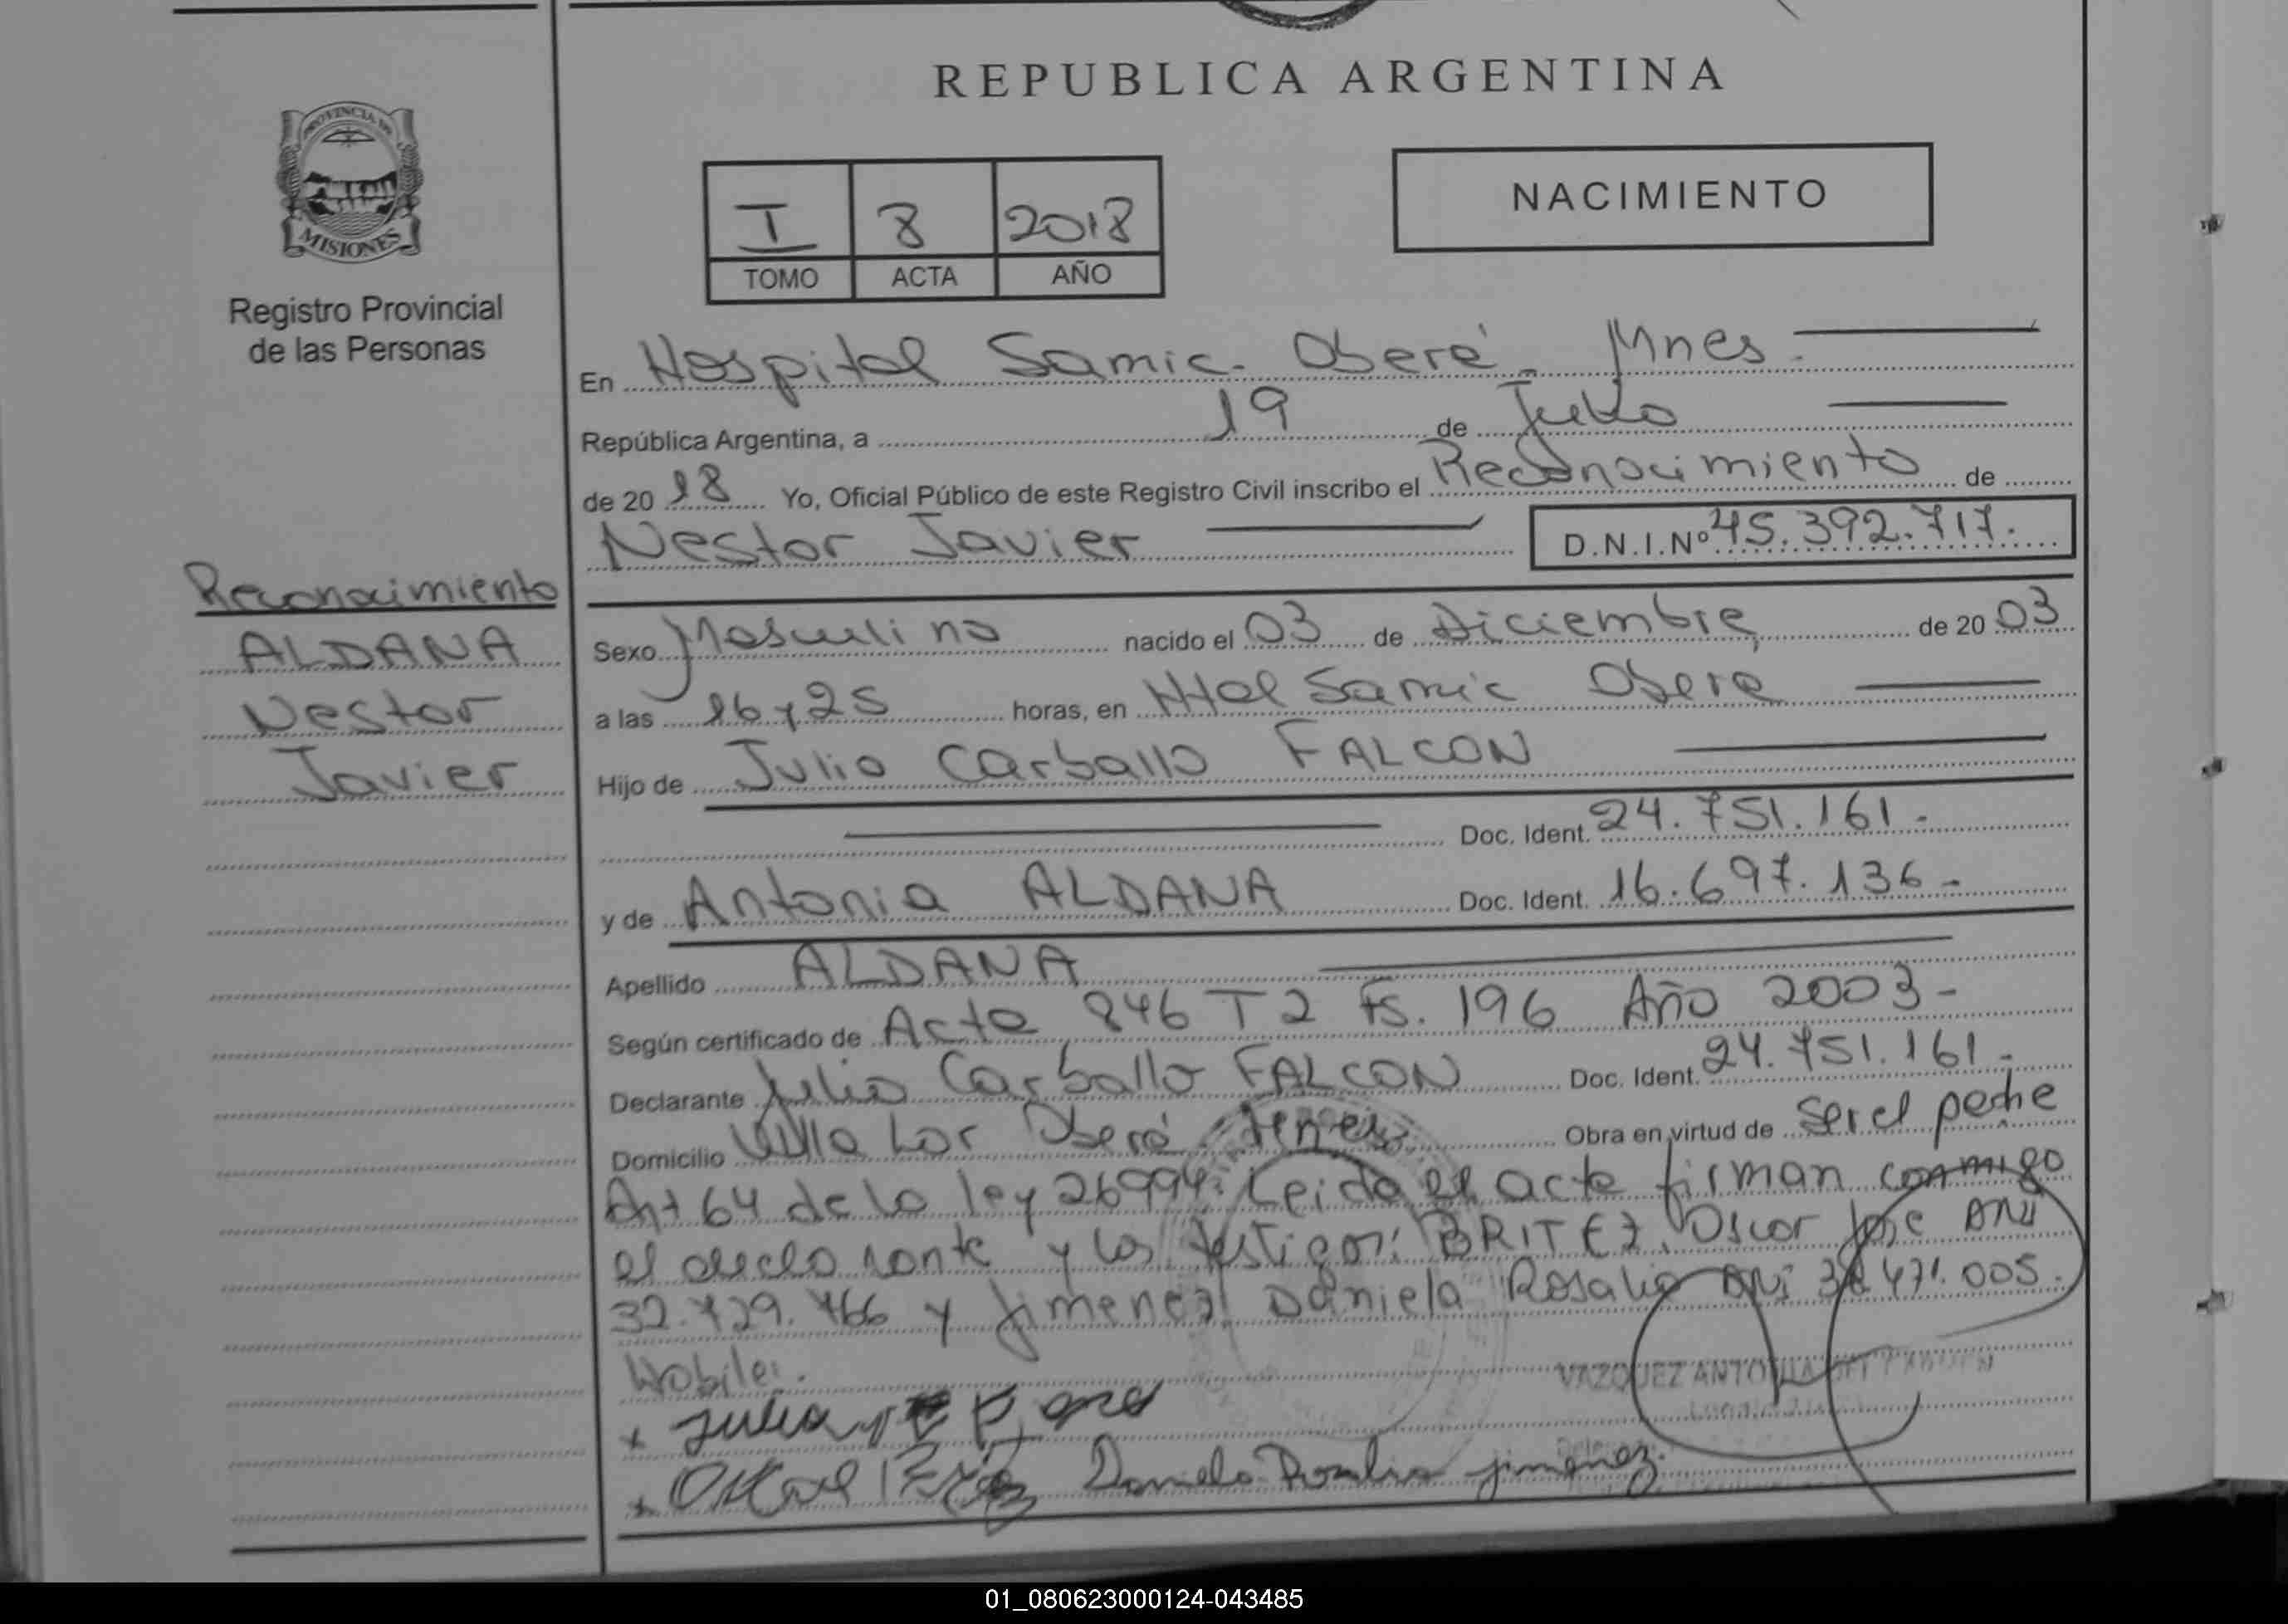 REPUBLICA ARGENTINA
PROVINCIA DE
MISIONES
Registro Provincial
de las Personas
I 8 2018
TOMO ACTA AÑO
NACIMIENTO
En Hospital Samic. Oberá. Mnes.
República Argentina, a 19 de Julio
de 20 18 Yo, Oficial Público de este Registro Civil inscribo el Reconocimiento de
Nestor Javier D.N.I.Nº 45.392.717.
Reconocimiento
ALDANA
Nestor
Javier
Sexo Masculino nacido el 03 de Diciembre, de 20 03
a las 16 y 25 horas, en Htal Samic Oberá
Hijo de Julio Carballo FALCON
Doc. Ident. 24.751.161.-
y de Antonia ALDANA Doc. Ident. 16.697.136-
Apellido ALDANA
Según certificado de Acta 846 T2 Fs. 196 Año 2003-
Declarante Julio Carballo FALCON Doc. Ident. 24.751.161.-
Domicilio Villa Lor Oberá Obra en virtud de Ser el padre
Art 64 de la ley 26994. Leida el acta firman conmigo
el declarante y los testigos: BRITEZ, Oscar Jose DNI
32.729.766 y Jimenez Daniela Rosalia DNI 471.005.
VAZQUEZ ANTONIA
Daniela Rosalia Jimenez.
01_080623000124-043485